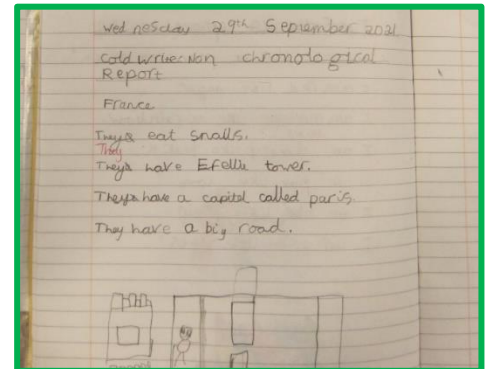 Wednesday 29th September 2021
Cold write: Non chronological
Report
France
They eat snails.
They
They have Efelle tower.
They have a capital called paris.
They have a big road.